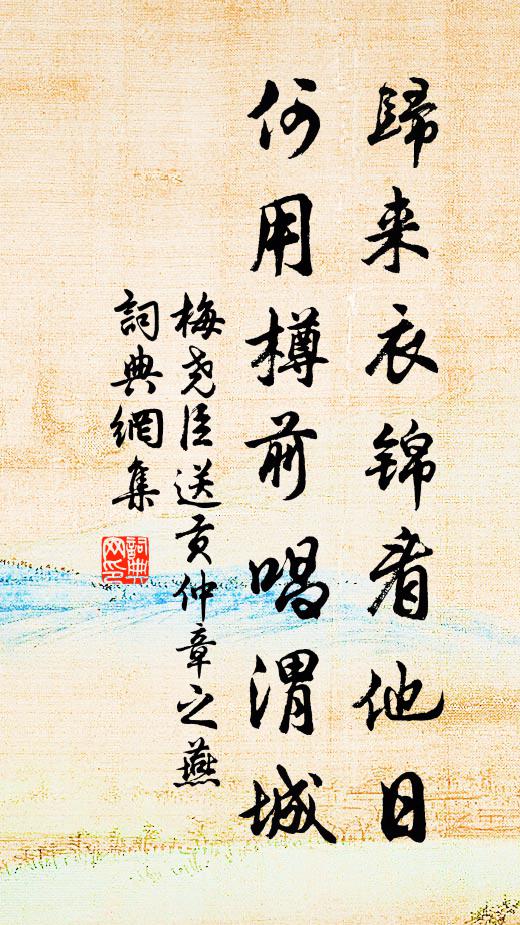 歸来衣錦看他日
何用樽前唱渭城
梅尭臣送貢仲章之燕
詞典網集
詞典网印